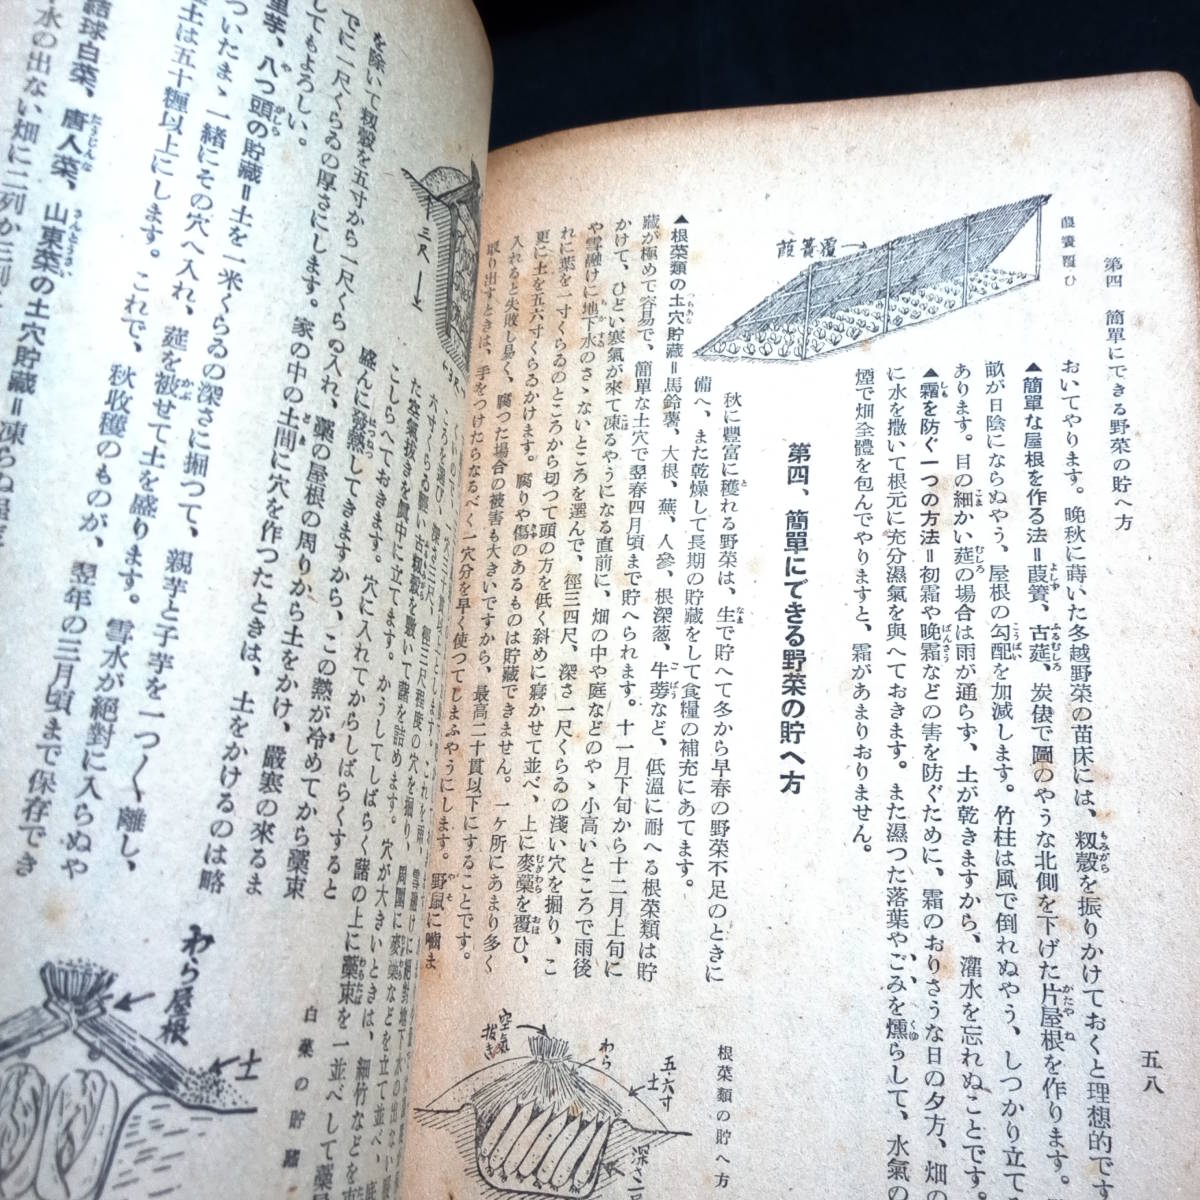 第四　簡單にできる野菜の貯へ方
五八
葭簀覆ひ
葭簀覆
おいてやります。晩秋に蒔いた冬越野菜の苗床には、籾殼を振りかけておくと理想的です
▲簡單な屋根を作る法＝葭簀、古莚、炭俵で圖のやうな北側を下げた片屋根を作ります。
畝が日陰にならぬやう、屋根の勾配を加減します。竹柱は風で倒れぬやう、しつかり立て
あります。目の細かい莚の場合は雨が通らず、土が乾きますから、灌水を忘れぬことです。
▲霜を防ぐ一つの方法＝初霜や晩霜などの害を防ぐために、霜のおりさうな日の夕方、畑の
に水を撒いて根元に充分濕氣を與へておきます。また濕つた落葉やごみを燻らして、水氣の
煙で畑全體を包んでやりますと、霜があまりおりません。
第四、簡單にできる野菜の貯へ方
秋に豐富に穫れる野菜は、生で貯へて冬から早春の野菜不足のときに
備へ、また乾燥して長期の貯藏をして食糧の補充にあてます。
▲根菜類の土穴貯藏＝馬鈴薯、大根、蕪、人參、根深葱、牛蒡など、低溫に耐へる根菜類は貯
藏が極めて容易で、簡單な土穴で翌春四月頃まで貯へられます。十一月下旬から十二月上旬に
かけて、ひどい寒氣が來て凍るやうになる直前に、畑の中や庭などのやゝ小高いところで雨後
や雪融けに地下水のさゝないところを選んで、徑三四尺、深さ一尺くらゐの淺い穴を掘り、こ
れに藁を一寸くらゐのところから切つて頭の方を低く斜めに寢かせて並べ、上に麥藁を覆ひ、
更に土を五六寸くらゐかけます。腐りや傷のあるものは貯藏できません。一ヶ所にあまり多く
入れると失敗し易く、腐つた場合の被害も大きいですから、最高二十貫以下にすることです。
取り出すときは、手をつけたらなるべく一穴分を早く使つてしまふやうにします。野鼠に嚙ま
根菜類の貯へ方
空氣拔き
わら
五六寸
土
深さ
三尺
ころを選び、深さ三尺、徑三尺程度の穴を掘り、周圍に麥藁などを立て並べ、底
六寸くらゐ輕い古籾殼を敷いて藷を詰めます。穴が大きいときは、細竹などを束
た空氣拔きを眞中に立てます。かうしてしばらく藷の上に藁束を一並べして藁屋
こしらへておきます。穴に入れてからしばらくすると
盛んに發熱してきますから、この熱が冷めてから藁束
を除いて籾殼を五寸から一尺くらゐ入れ、藁の屋根の周りから土をかけ、嚴寒の來るま
でに一尺くらゐの厚さにします。家の中の土間に穴を作つたときは、土をかけるのは略
してもよろしい。
里芋、八つ頭の貯藏＝土を一米くらゐの深さに掘つて、親芋と子芋を一つ〱離し、
ついたまゝ一緒にその穴へ入れ、莚を被せて土を盛ります。雪水が絕對に入らぬや
土は五十糎以上にします。これで、秋收穫のものが、翌年の三月頃まで保存でき
結球白菜、唐人菜、山東菜の土穴貯藏＝凍らぬ程度
水の出ない畑に二列か三列
白菜の貯藏
わら屋根
土